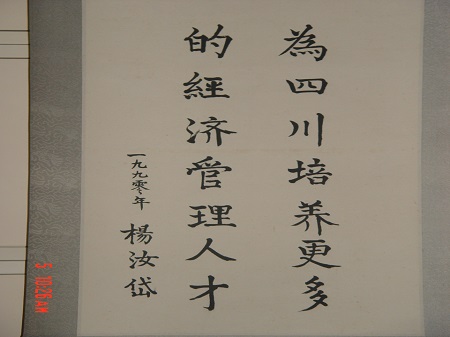 為四川培养更多
的經济管理人才
一九九零年
楊汝岱
5 10:26 AM